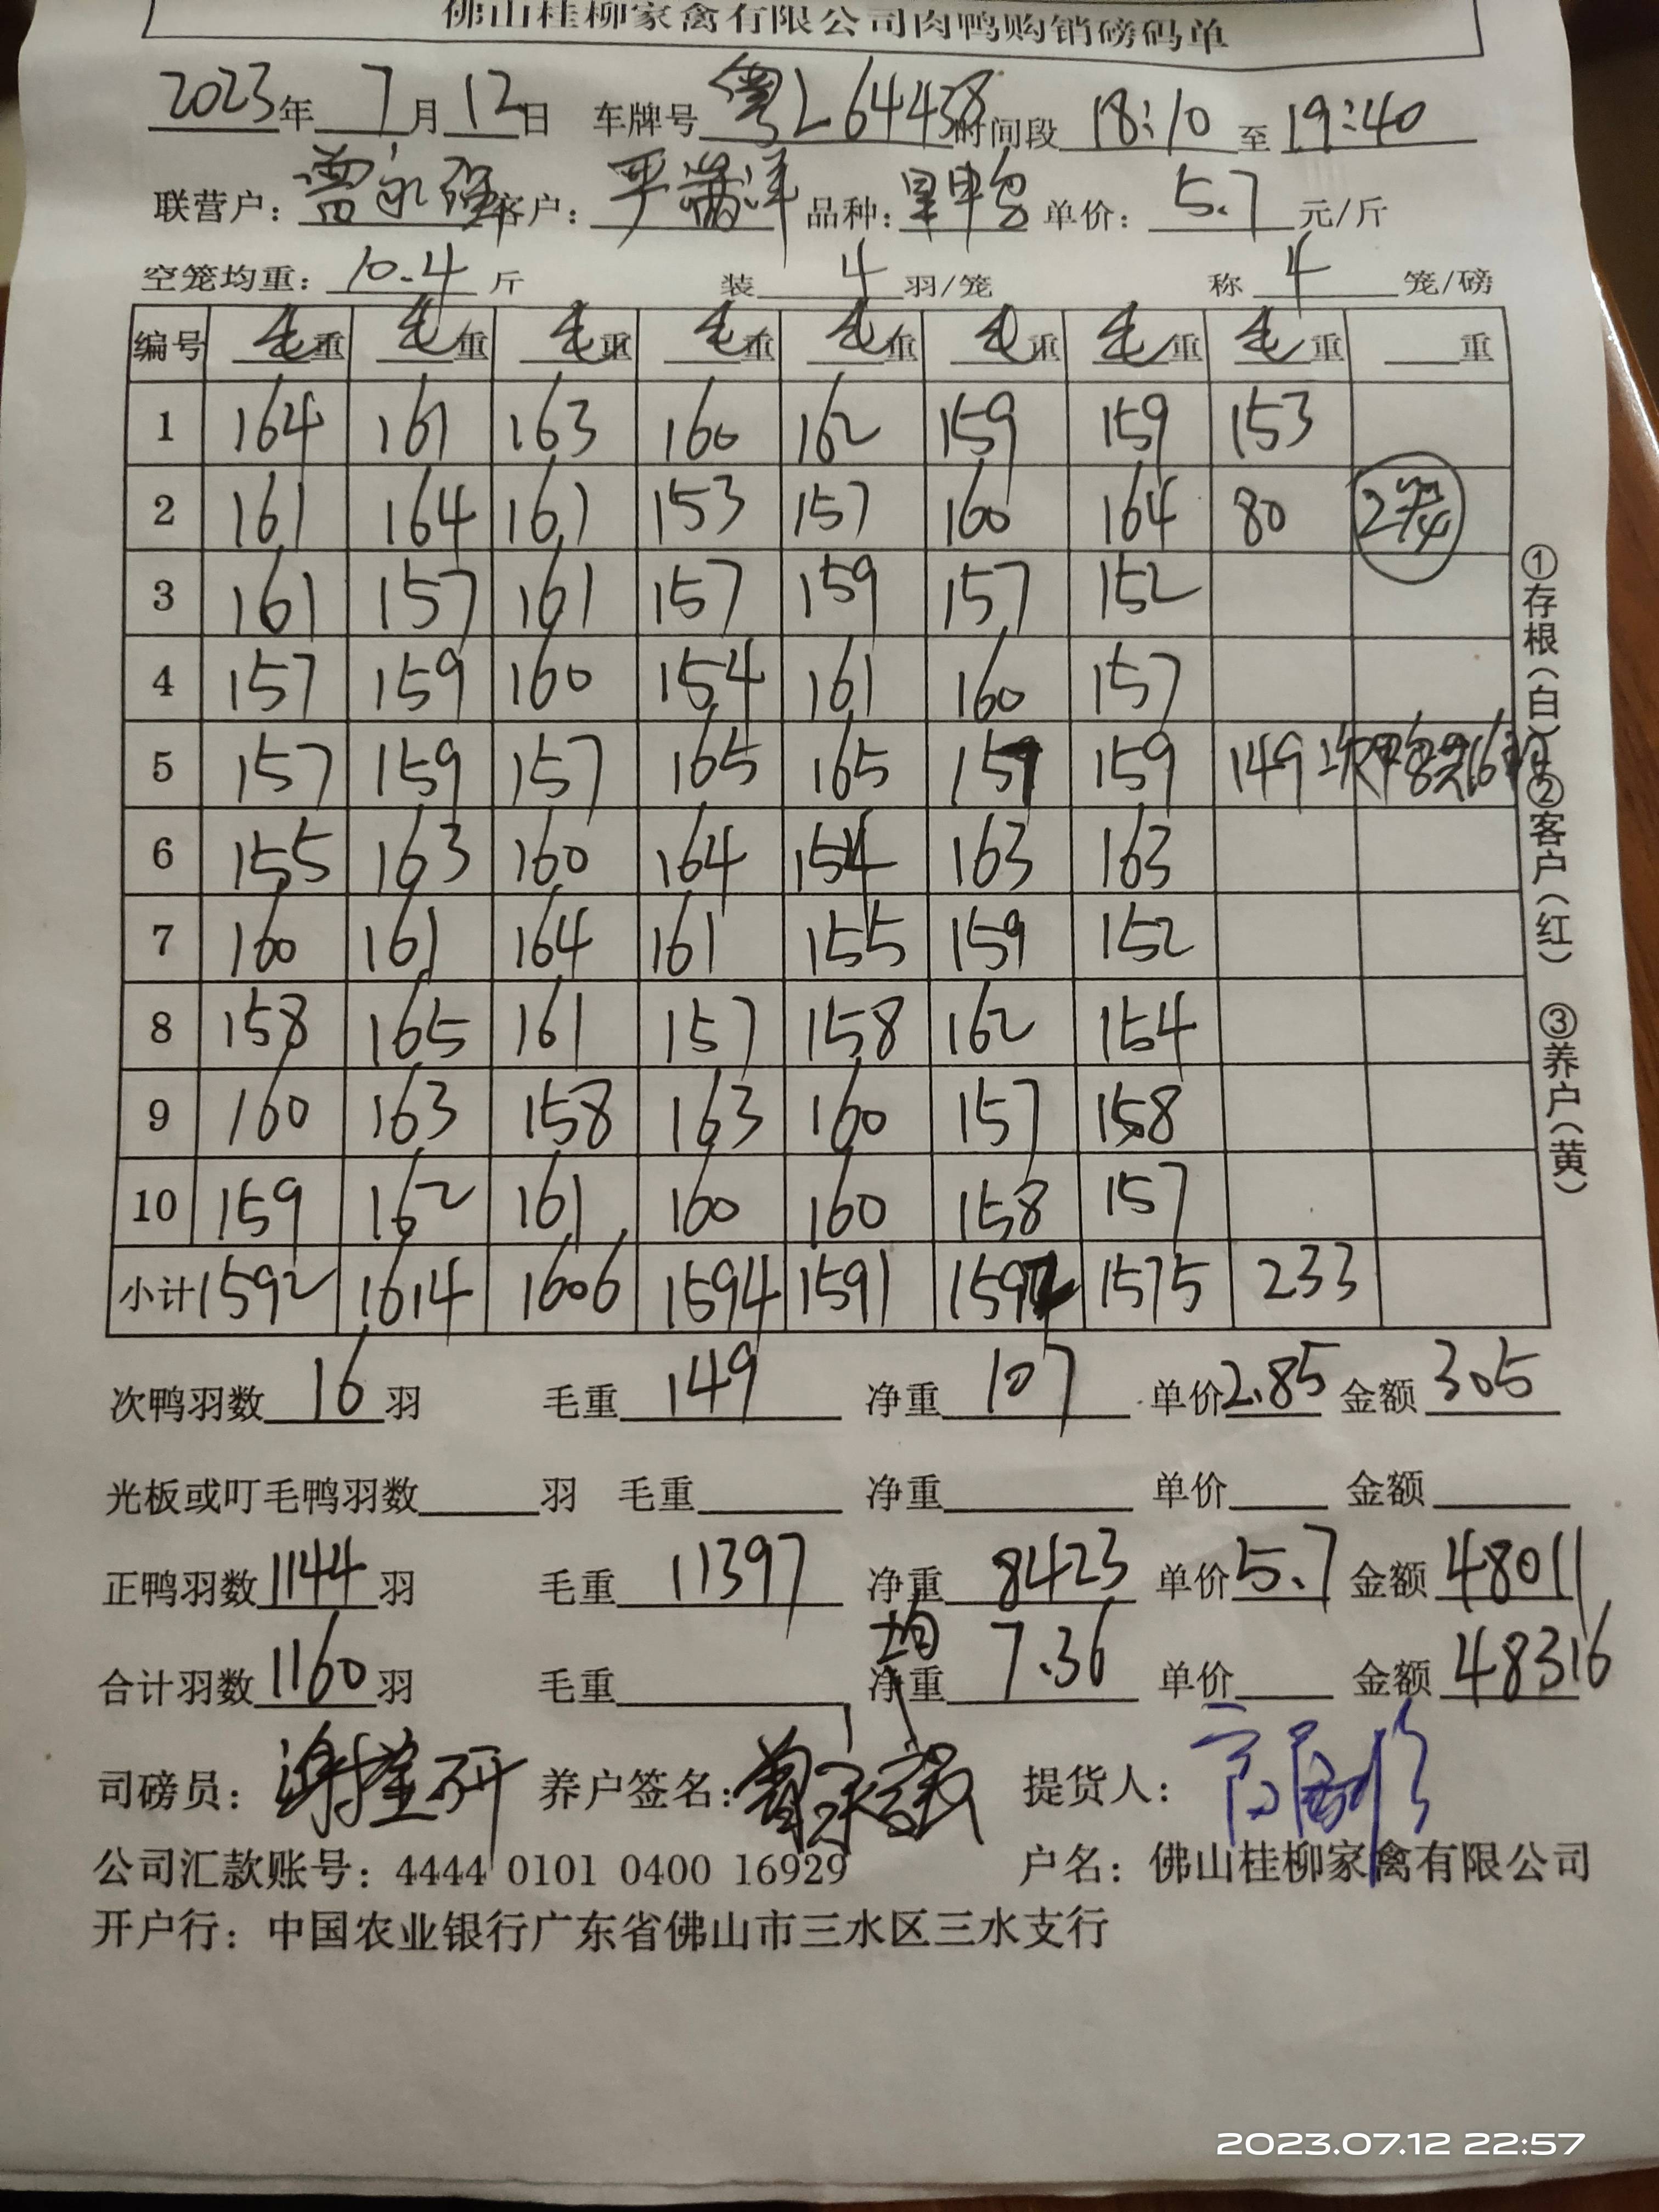 佛山桂柳家禽有限公司肉鸭购销磅码单
2023年 7月12日 车牌号 粤L64438 时间段 18:10 至 19:40
联营户: 曾永强 客户: 严 洋 品种: 单价: 5.7 元/斤
空笼均重: 10.4 斤 装 4 羽/笼 称 4 笼/磅
编号 毛重 毛重 毛重 毛重 毛重 毛重 毛重 毛重 重
1 164 161 163 160 162 159 159 153
2 161 164 161 153 157 160 164 80 2笼
3 161 157 161 157 159 157 152
4 157 159 160 154 161 160 157
5 157 159 157 165 165 159 159 149 次鸭16羽
6 155 163 160 164 154 163 163
7 160 161 164 161 155 159 152
8 158 165 161 157 158 162 154
9 160 163 158 163 160 157 158
10 159 162 161 160 160 158 157
小计 1592 1614 1606 1594 1591 1592 1575 233
①存根(白)②客户(红) ③养户(黄)
次鸭羽数 16 羽 毛重 149 净重 107 单价 2.85 金额 305
光板或叮毛鸭羽数 羽 毛重 净重 单价 金额
正鸭羽数 1144 羽 毛重 11397 净重 8423 单价 5.7 金额 48011
合计羽数 1160 羽 毛重 均 净重 7.36 单价 金额 48316
司磅员: 养户签名: 曾永强 提货人:
公司汇款账号: 4444 0101 0400 16929 户名: 佛山桂柳家禽有限公司
开户行: 中国农业银行广东省佛山市三水区三水支行
2023.07.12 22:57